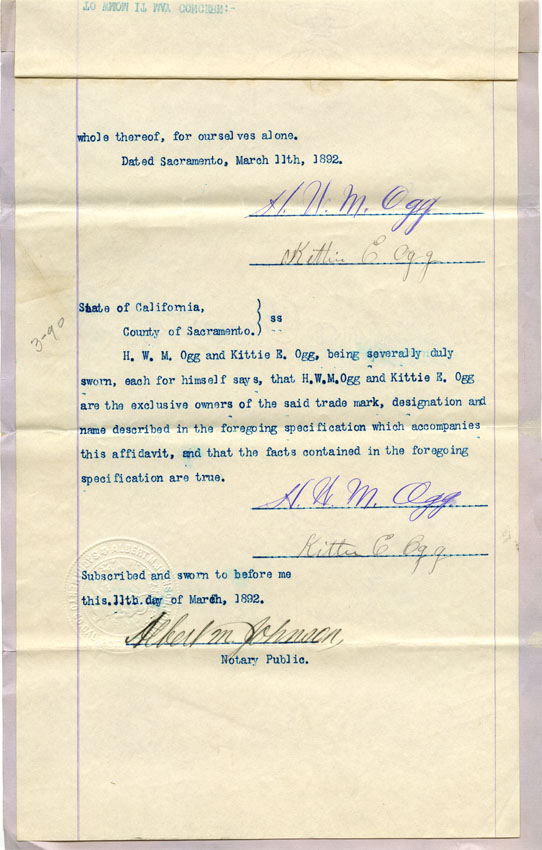 TO WHOM IT MAY CONCERN:-
whole thereof, for ourselves alone.
Dated Sacramento, March 11th, 1892.
H. W. M. Ogg
Kittie E. Ogg
State of California,
County of Sacramento.
} ss
H. W. M. Ogg and Kittie E. Ogg, being severally duly
sworn, each for himself says, that H.W.M.Ogg and Kittie E. Ogg
are the exclusive owners of the said trade mark, designation and
name described in the foregoing specification which accompanies
this affidavit, and that the facts contained in the foregoing
specification are true.
3-90
H. W. M. Ogg
Kittie E. Ogg
Subscribed and sworn to before me
this.11th.day of March, 1892.
Albert M. Johnson
Notary Public.